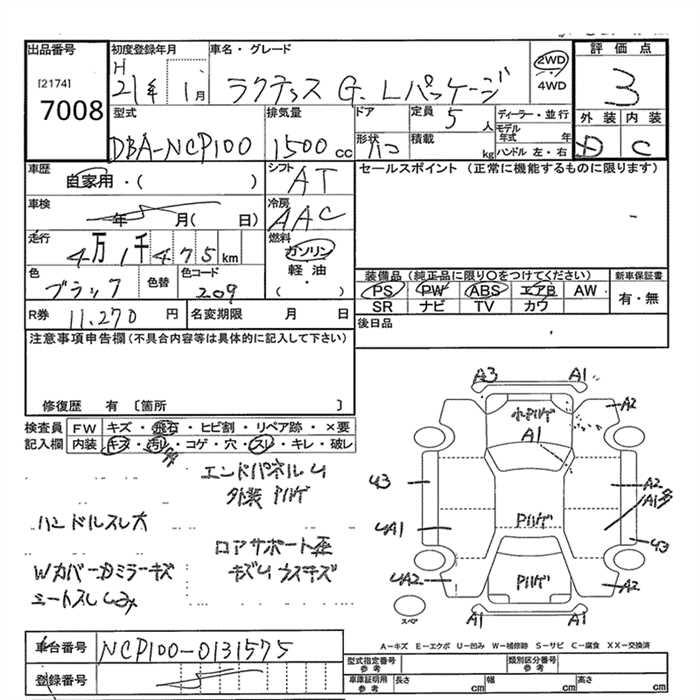 出品番号
[2174]
7008
初度登録年月
H
21年 1月
車名・グレード
ラクティス G. Lパッケージ
2WD
4WD
評価点
3
外装 内装
D C
型式
DBA-NCP100
排気量
1500 cc
ドア
形状
ハコ
定員
5人
積載
kg
ディーラー・並行
モデル年式 年
ハンドル 左・右
車歴
自家用・( )
シフト
AT
セールスポイント (正常に機能するものに限ります)
車検
年 月( 日)
冷房
AAC
走行
4万1千475km
燃料
ガソリン
軽・油
( )
色
ブラック
色替
色コード
209
装備品(純正品に限り〇をつけてください)
新車保証書
PS PW ABS エアB AW
有・無
SR ナビ TV カワ
R券 11,270円
名変期限 月 日
後日品
注意事項申告欄(不具合内容等は具体的に記入して下さい)
修復歴 有 〔箇所 〕
検査員
記入欄
FW キズ・飛石・ヒビ割・リペア跡・×要
内装 キズ・汚レ・コゲ・穴・スレ・キレ・破レ
エンドパネルU
外装 Pハゲ
ハンドルスレ大
ロアサポート歪
Wカバー・Dミラーキズ
キズU ウスキズ
シートスレ
A3 A1
小Pハゲ
A2
A1
U3
A2
Pハゲ
U A1
U3
U A2
Pハゲ
A2
スペア
A1
A1
A-キズ E-エクボ U-凹み W-補修跡 S-サビ C-腐食 XX-交換済
車台番号
NCP100-0131575
登録番号
型式指定番号
参考
類別区分番号
参考
車庫証明用
参考
長さ cm
幅 cm
高さ cm